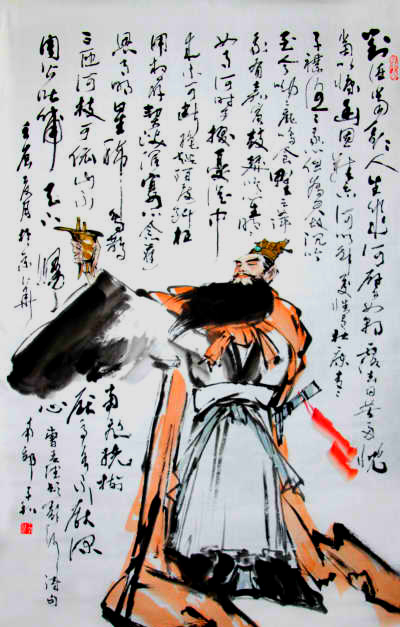 對酒當歌人生幾何譬如朝露去日苦多慨
當以慷幽思難忘何以解憂惟有杜康青青
子衿悠悠我心但為君故沉吟
至今呦呦鹿鳴食野之苹
我有嘉賓鼓瑟吹笙明明
如月何時可掇憂從中
來不可斷絕越陌度阡枉
用相存契闊談讌心念舊
恩月明星稀烏鵲
南飛繞樹
三匝何枝可依山不
厭高水不厭深
周公吐哺天下歸
心
壬辰
曹孟德短歌行詩句